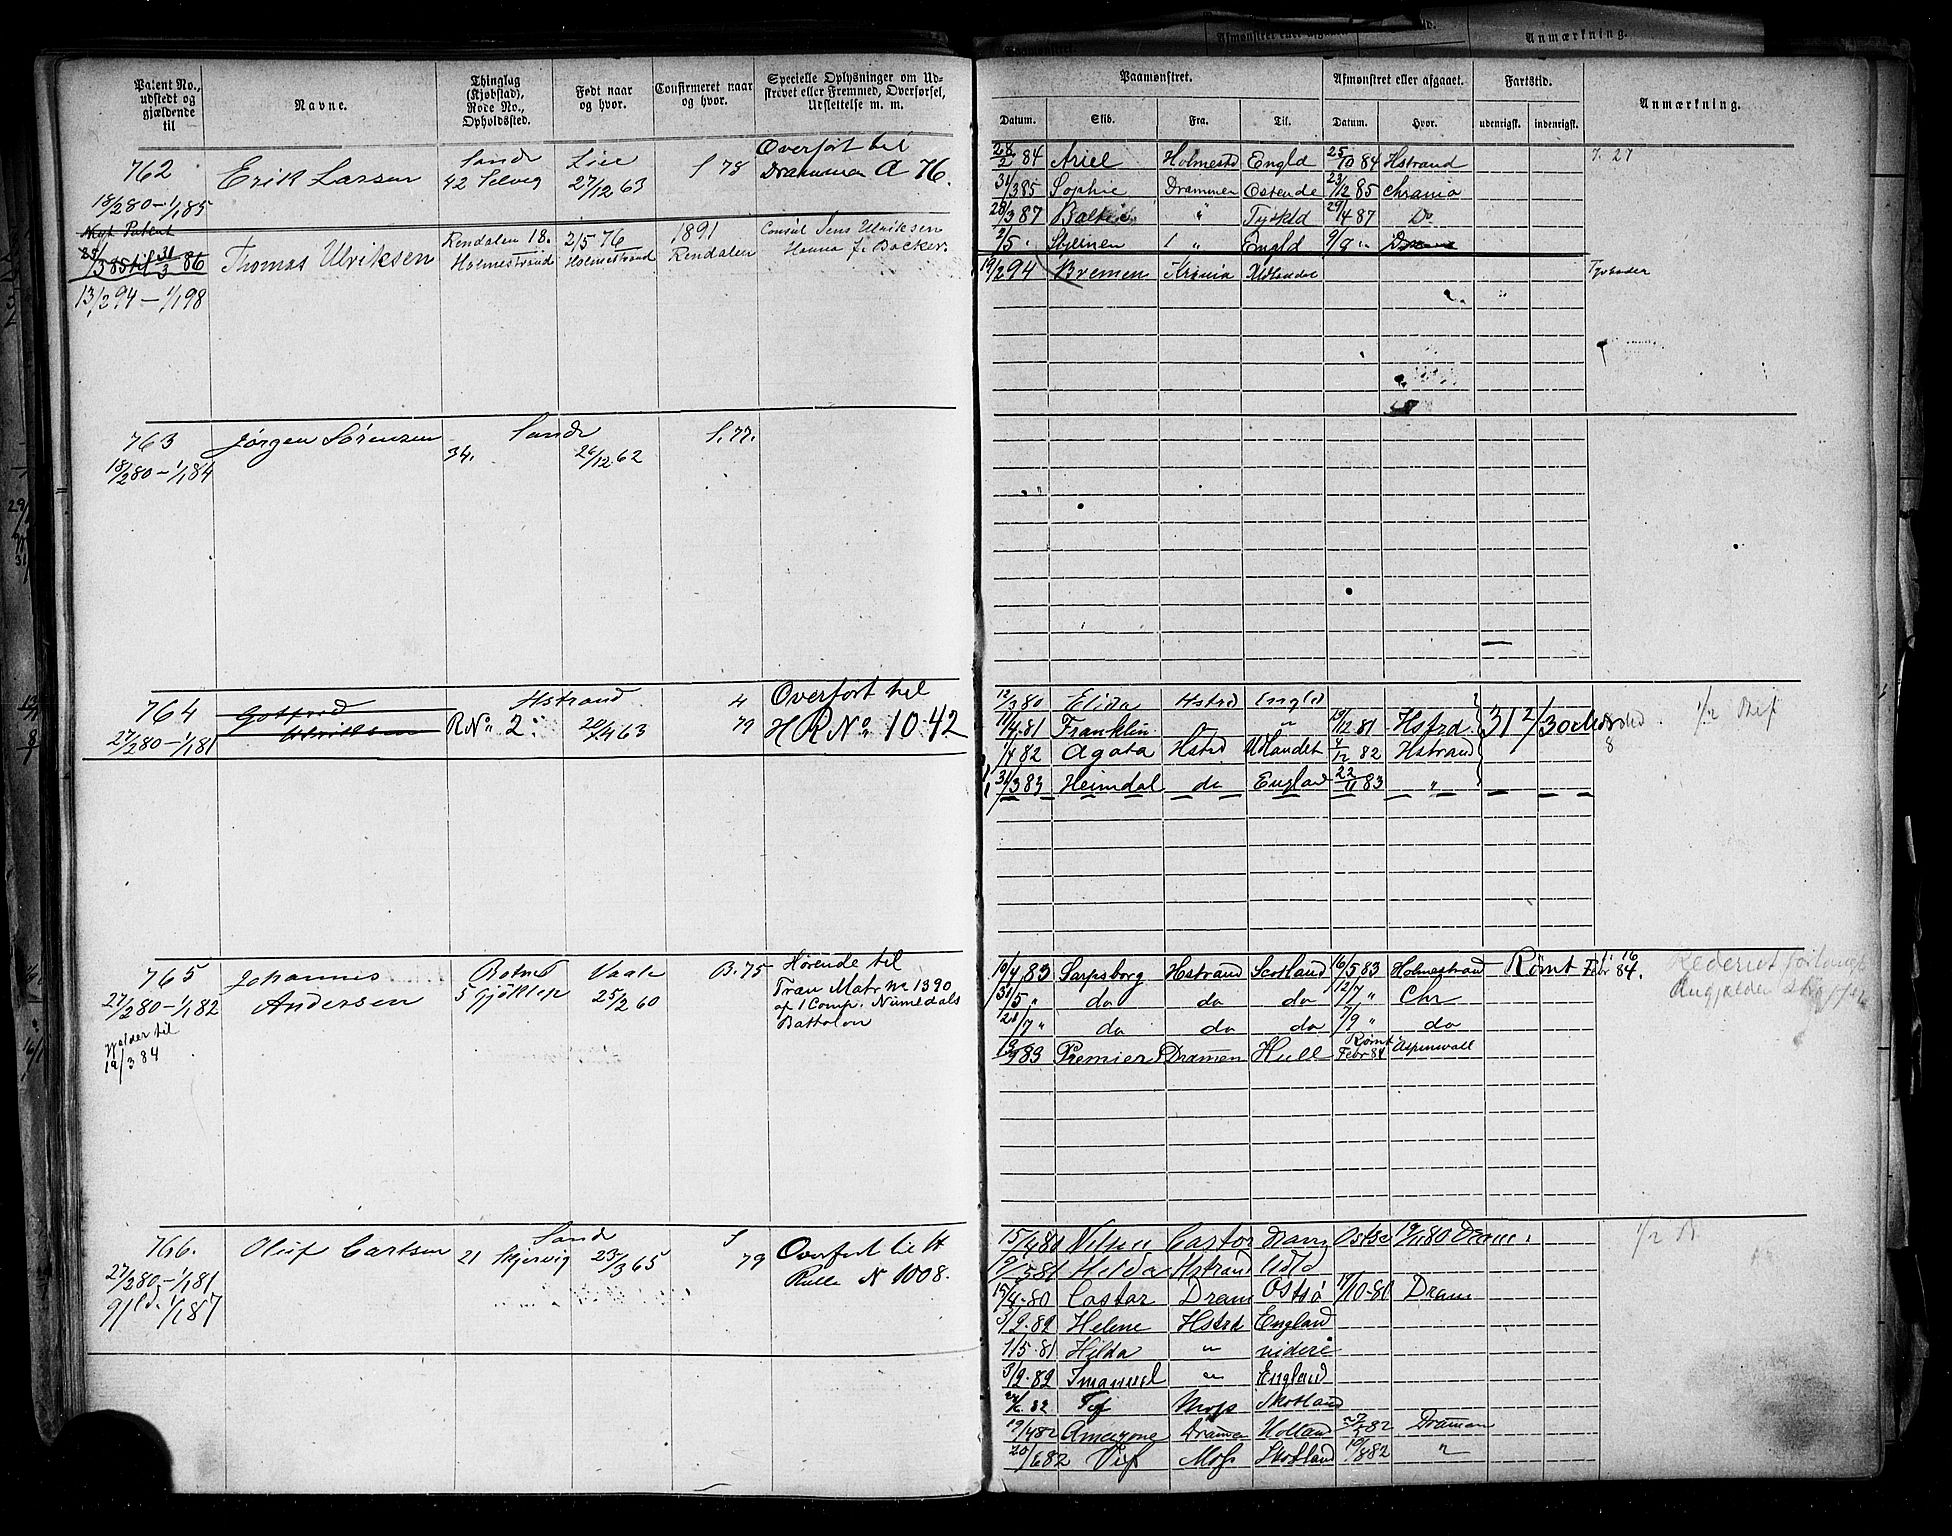 Patent No., udstedt og gjældende til
Navne.
Thinglag (Kjøbstad), Rode No., Opholdssted.
Født naar og hvor.
Confirmeret naar og hvor.
Specielle Oplysninger om Udskrevet eller Fremmed, Overførsel, Udslettelse m. m.
762
18/2 80 – 1/1 85
Erik Larsen
Sande
42 Selvig
Lier
27/12 63
S 78
Overført til
Drammen A 76.
Nyt Patent
13/2 94 – 1/1 98
Thomas Ulriksen
Rendalen 18.
Holmestrand
2/5 76
Holmestrand
1891
Rendalen
Consul Jens Ulriksen
Hanna f. Backer
763
18/2 80 – 1/1 84
Jørgen Sørensen
Sande
34.
26/12 62
S. 77.
764
27/2 80 – 1/1 81
Gotfred
Ulriksen
Hstrand
RNo 2.
20/4 63
H
79
Overført til
HRNo 1042
765
27/2 80 – 1/1 82
gjelder til
19/3 84
Johannes
Andersen
Botne
5 Gjöklep
Vaale
25/2 60
B. 75
Hørende til
Træn Matr No 1390
af 1 Comp. Numedals
Battalon
766.
27/2 80. – 1/1 81
Oluf Carlsen
Sande
21 Skjervig
23/3 65
S
79
Overført til H
Rulle N 1008.
Paamønstret.
Afmønstret eller afgaaet.
Fartstid.
Anmærkning.
Datum.
Skib.
Fra.
Til.
Datum.
Hvor.
udenrigsk.
indenrigsk.
28/2 84 Ariel Holmestd Engld 25/10 84 Hstrand
31/3 85 Sophie Drammen Ostende 23/12 85 Chrania
28/3 87 Baltic " Tyskld 29/4 87 Do
2/5 " " Engld 9/8 "
19/2 94 Bremen Krania Udlandet
12/3 80 Elida Hstrd Engld
11/4 81 Franklin " " 19/12 81 Hstrd.
1/4 82 Agata Hstrd Udlandet 82 Hstrand
31/3 83 Heimdal do England 22/11 83 "
10/4 83 Sarpsborg Hstrand Scotland 6/5 83 Holmestrand Rømt Febr 84.
31/5 " do do do 12/7 " Chr
21/7 " do do do 7/9 " do
13/9 83 Premier Dramen Hull Rømt Febr 84 Aspinwall
15/4 80 Castor Dram Ostsø 19/11 80 Dram.
19/5 81 Hilda Hstrand Udld
15/4-80 Castor Dram Ostsø 19/10-80 Dram
3/2-82 Helene Hstrd England
1/5-81 Hilda " videre
3/2-82 Imanuel " England
82 Moss Skotland
19/4 82 Amazone Dramen Holland 82 Dramen
20/6 82 Vif Moss Skotland 19/8 82 "